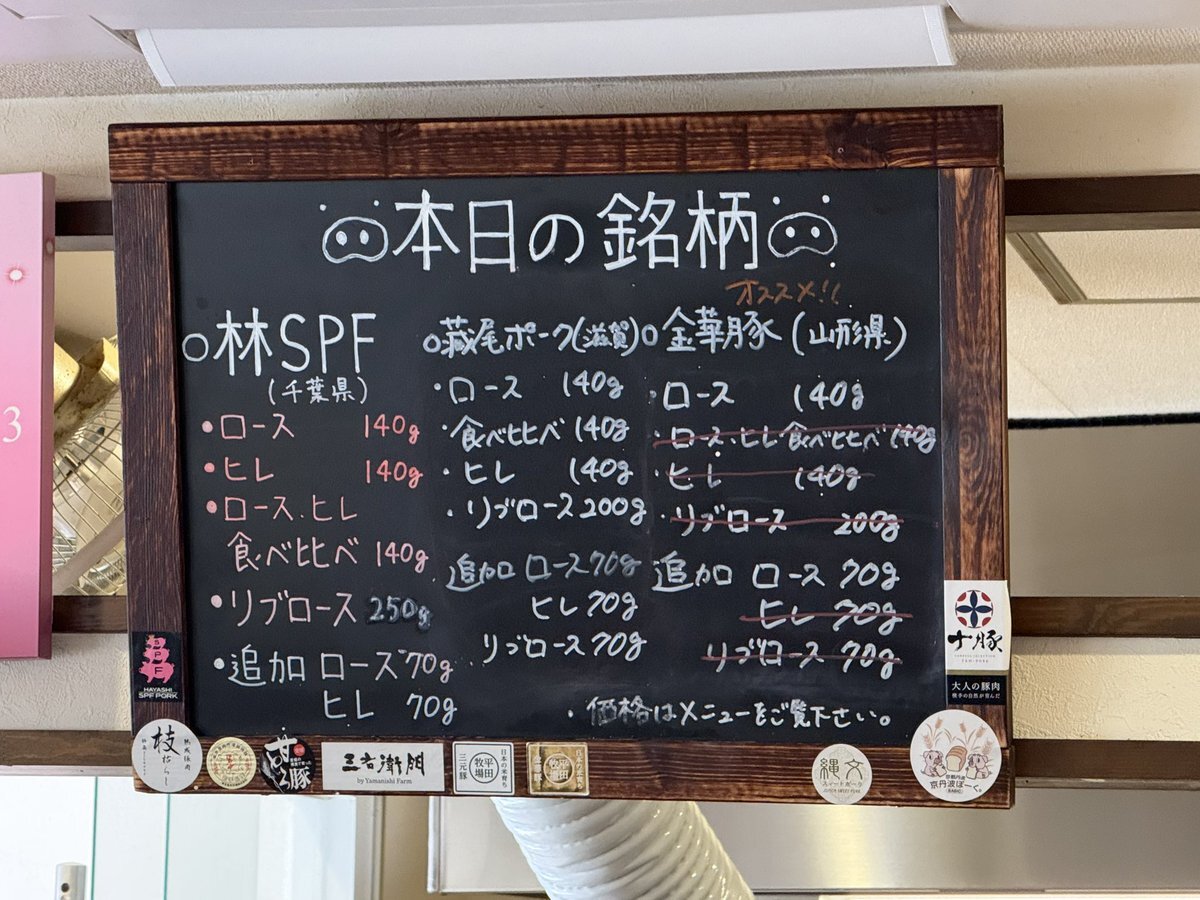 本日の銘柄
オススメ!!
○林SPF
(千葉県)
・ロース 140g
・ヒレ 140g
・ロース.ヒレ
食べ比べ 140g
・リブロース 250g
・追加 ロース 70g
ヒレ 70g
○蔵尾ポーク(滋賀)
・ロース 140g
・食べヒヒべ 140g
・ヒレ 140g
・リブロース 200g
追加 ロース 70g
ヒレ 70g
リブロース 70g
○金華豚(山形県)
・ロース 140g
・ロース.ヒレ食べヒヒべ 140g
・ヒレ 140g
・リブロース 200g
追加 ロース 70g
ヒレ 70g
リブロース 70g
・価格はメニューをご覧下さい。
3
SPF
HAYASHI
SPF PORK
枝
三右衛門
by Yamanishi Farm
日本の米育ち
平田牧場
三元豚
平田牧場
縄文
スィートポーク
京丹波ぽーく。
十豚
大人の豚肉